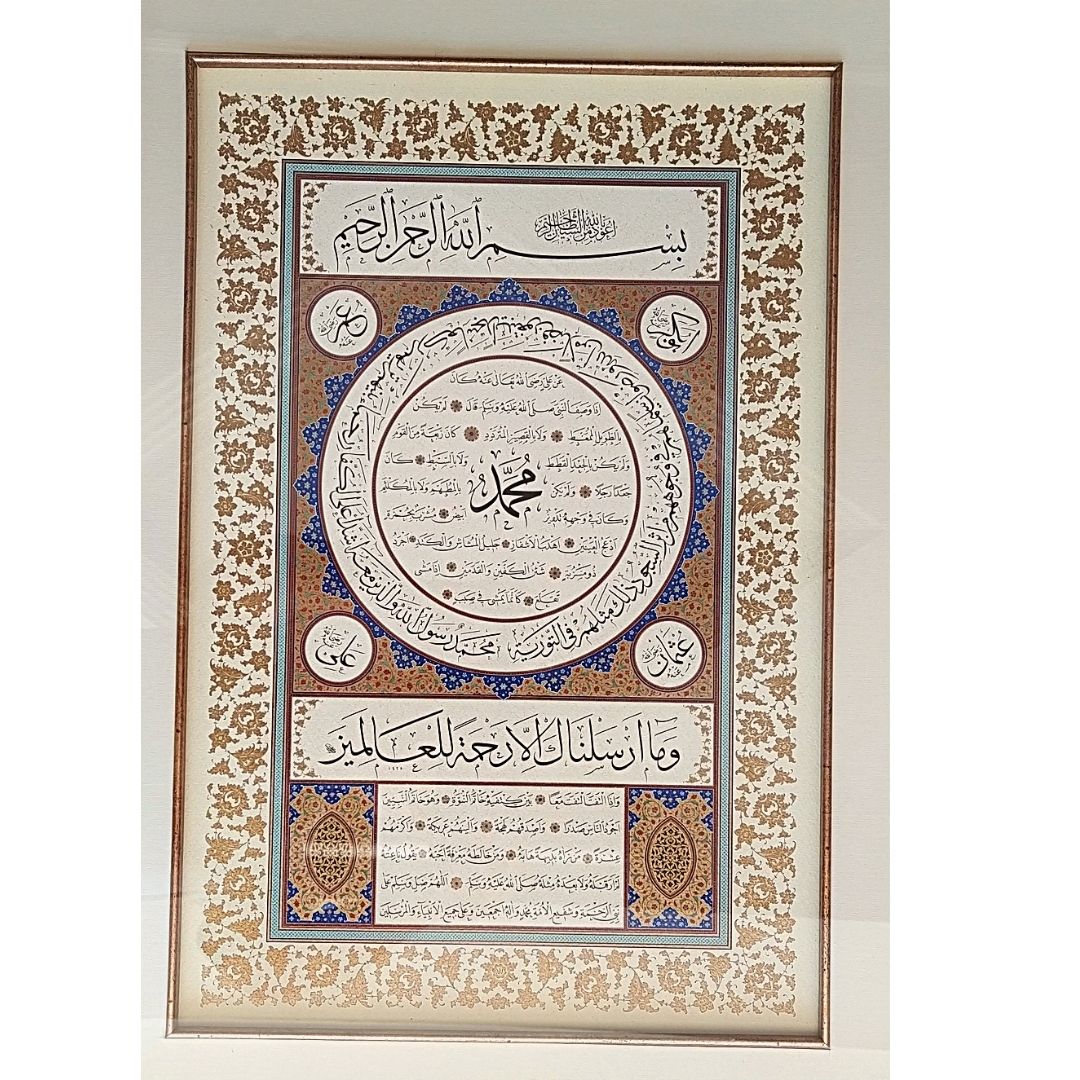 أعوذ بالله من الشيطان الرجيم
بسم الله الرحمن الرحيم
أبو بكر
عمر
عن علي رضي الله تعالى عنه كان
إذا وصف النبي صلى الله عليه وسلم قال لم يكن
بالطويل الممغط ولا بالقصير المتردد كان ربعة من القوم
ولم يكن بالجعد القطط ولا بالسبط كان
محمد
جعدا رجلا ولم يكن بالمطهم ولا بالمكلثم
وكان في وجهه تدوير أبيض مشرب بحمرة
أدعج العينين أهدب الأشفار جليل المشاش والكتد أجرد
ذو مسربة شثن الكفين والقدمين إذا مشى
تقلع كأنما يمشي في صبب
محمد رسول الله والذين معه أشداء على الكفار رحماء بينهم تريهم ركعا سجدا يبتغون فضلا من الله ورضوانا سيماهم في وجوههم من أثر السجود ذلك مثلهم في التورية
عثمان
علي
وما أرسلناك إلا رحمة للعالمين
وإذا التفت التفت معا بين كتفيه خاتم النبوة وهو خاتم النبيين
أجود الناس صدرا وأصدقهم لهجة وألينهم عريكة وأكرمهم
عشرة من رآه بديهة هابه ومن خالطه معرفة أحبه يقول ناعته
لم أر قبله ولا بعده مثله صلى الله عليه وسلم اللهم صل وسلم على
نبي الرحمة وشفيع الأمة محمد وآله أجمعين وعلى جميع الأنبياء والمرسلين